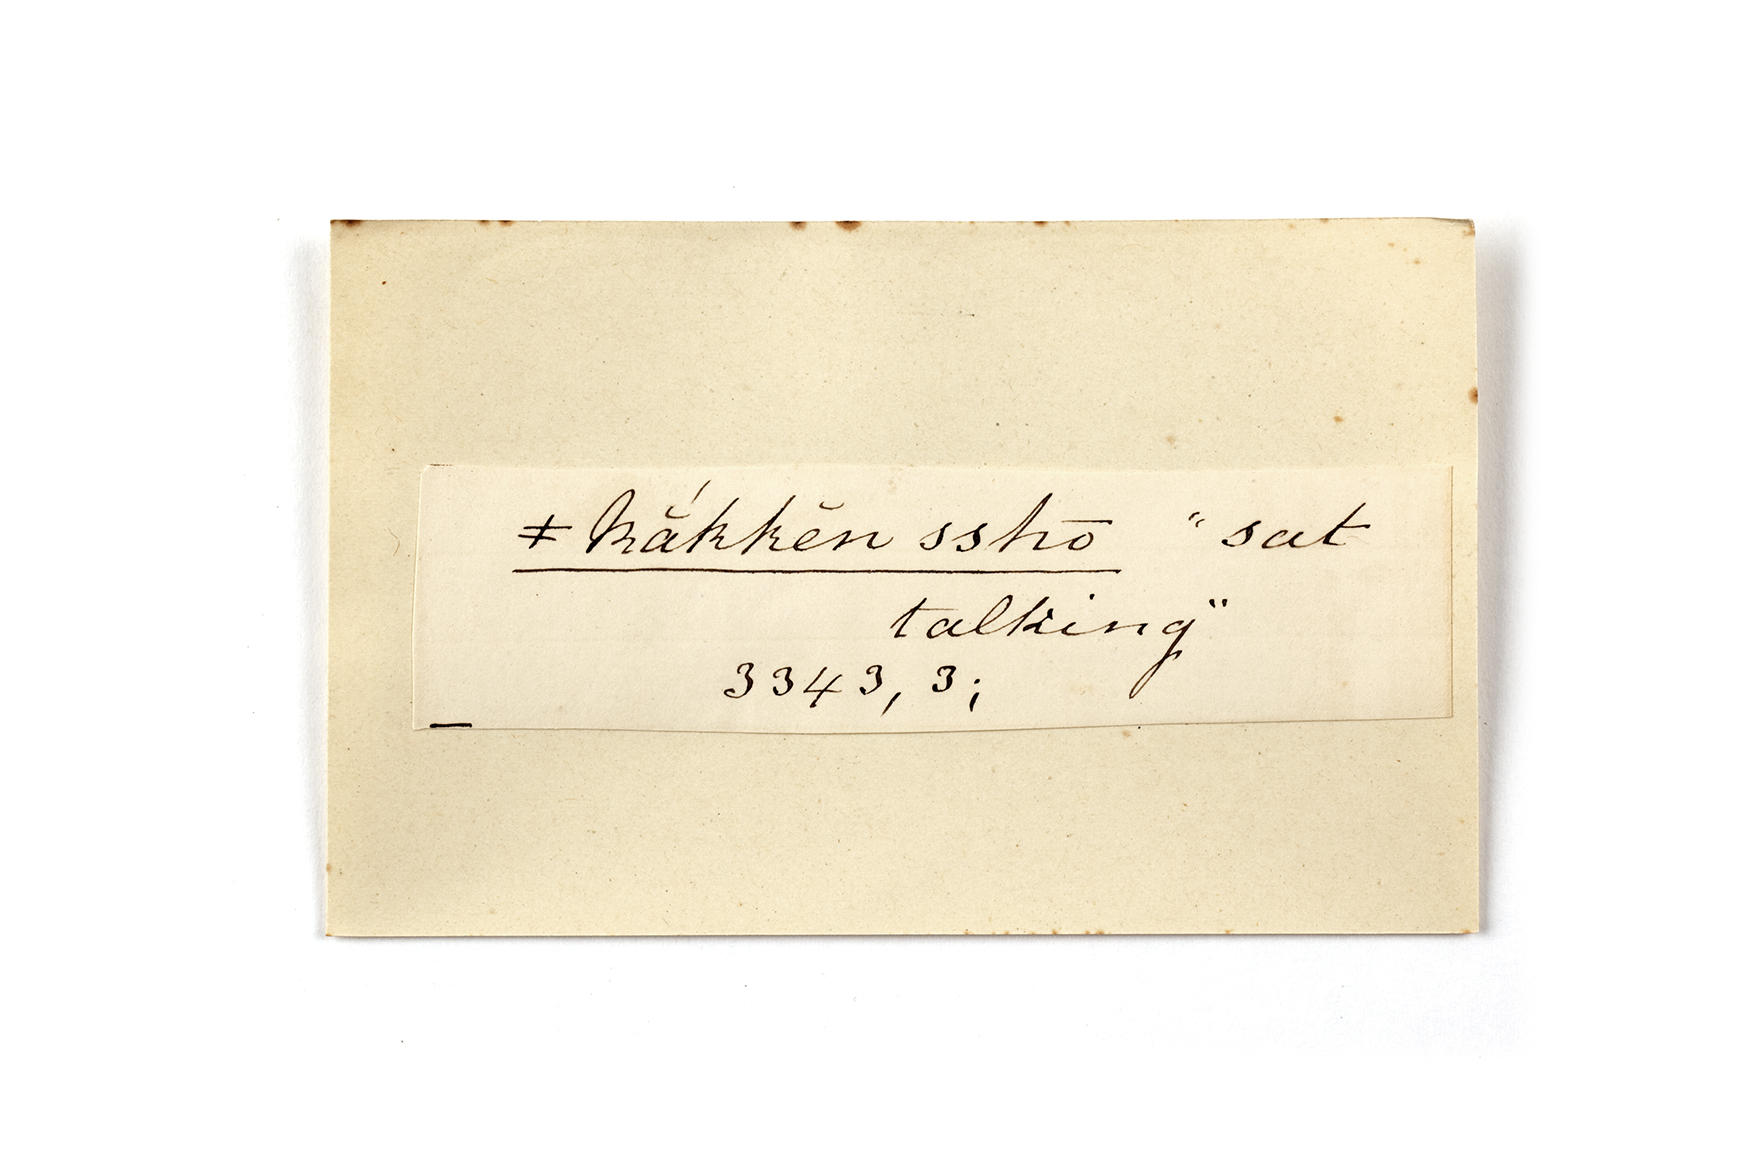 ǂkắkkĕn sshō "sat
talking"
3343, 3;